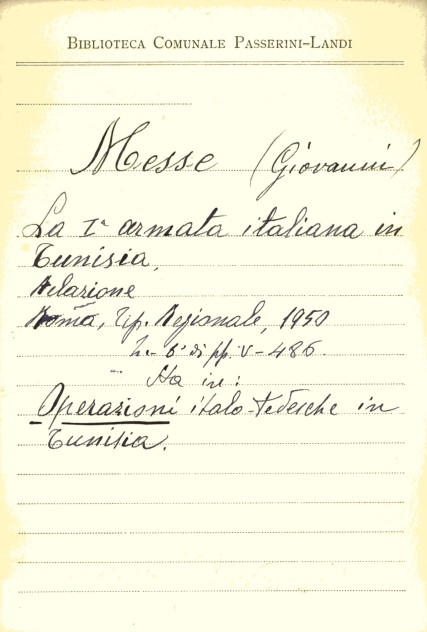 BIBLIOTECA COMUNALE PASSERINI-LANDI
Messe (Giovanni)
La Iª armata italiana in
Tunisia,
Relazione
Roma, Tip. Regionale, 1950
in-8° di pp. V-486.
Sta in:
Operazioni italo-tedesche in
Tunisia.